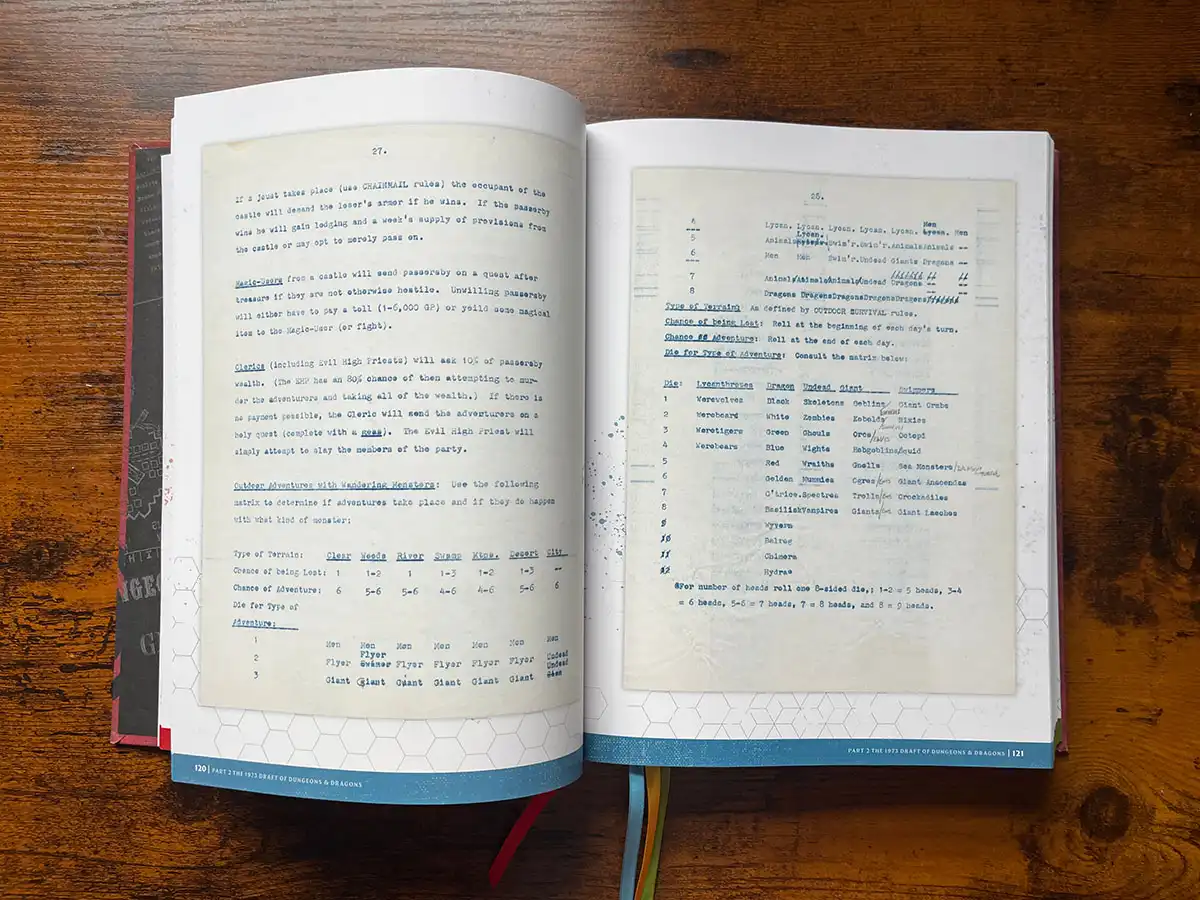 27.
If a joust takes place (use CHAINMAIL rules) the occupant of the
castle will demand the loser's armor if he wins. If the passerby
wins he will gain lodging and a week's supply of provisions from
the castle or may opt to merely pass on.
Magic-Users from a castle will send passersby on a quest after
treasure if they are not otherwise hostile. Unwilling passersby
will either have to pay a toll (1-6,000 GP) or yeild some magical
item to the Magic-User (or fight).
Clerics (including Evil High Priests) will ask 10% of passersby
wealth. (The EHP has an 80% chance of then attempting to mur-
der the adventurers and taking all of the wealth.) If there is
no payment possible, the Cleric will send the adventurers on a
holy quest (complete with a geas). The Evil High Priest will
simply attempt to slay the members of the party.
Outdoor Adventures with Wandering Monsters: Use the following
matrix to determine if adventures take place and if they do happen
with what kind of monster:
Type of Terrain: Clear Woods River Swamp Mtns. Desert City
Chance of being Lost: 1 1-2 1 1-3 1-2 1-3 --
Chance of Adventure: 6 5-6 5-6 4-6 4-6 5-6 6
Die for Type of
Adventure:
1 Men Men Men Men Men Men Men
Flyer
2 Flyer Swimer Flyer Flyer Flyer Flyer Undead
Undead
3 Giant Giant Giant Giant Giant Giant
120 | PART 2 THE 1973 DRAFT OF DUNGEONS & DRAGONS
Men
4 Lycan. Lycan. Lycan. Lycan. Lycan. Lycan. Men
Lycan.
5 Animals Swim'r. Swim'r. Animals Animals --
6 Men Men Swim'r. Undead Giants Dragons --
7 Animals Animals Animals Undead Dragons -- --
8 Dragons Dragons Dragons Dragons Dragons
Type of Terrain: As defined by OUTDOOR SURVIVAL rules.
Chance of being Lost: Roll at the beginning of each day's turn.
Chance of Adventure: Roll at the end of each day.
Die for Type of Adventure: Consult the matrix below:
Die: Lycanthropes Dragon Undead Giant Swimmers
1 Werevolves Black Skeletons Goblins Giant Crabs
2 Wereboard White Zombies Kobolds Nixies
3 Weretigers Green Ghouls Orcs Octopi
4 Werebears Blue Wights Hobgoblins Squid
5 Red Wraiths Gnolls Sea Monsters
6 Golden Mummies Ogres Giant Anacondas
7 C'trice. Spectres Trolls Crockadiles
8 Basilisk Vampires Giants Giant Leeches
9 Wyvern
10 Balrog
11 Chimera
12 Hydra*
*For number of heads roll one 8-sided die,; 1-2 = 5 heads, 3-4
= 6 heads, 5-6 = 7 heads, 7 = 8 heads, and 8 = 9 heads.
PART 2 THE 1973 DRAFT OF DUNGEONS & DRAGONS | 121